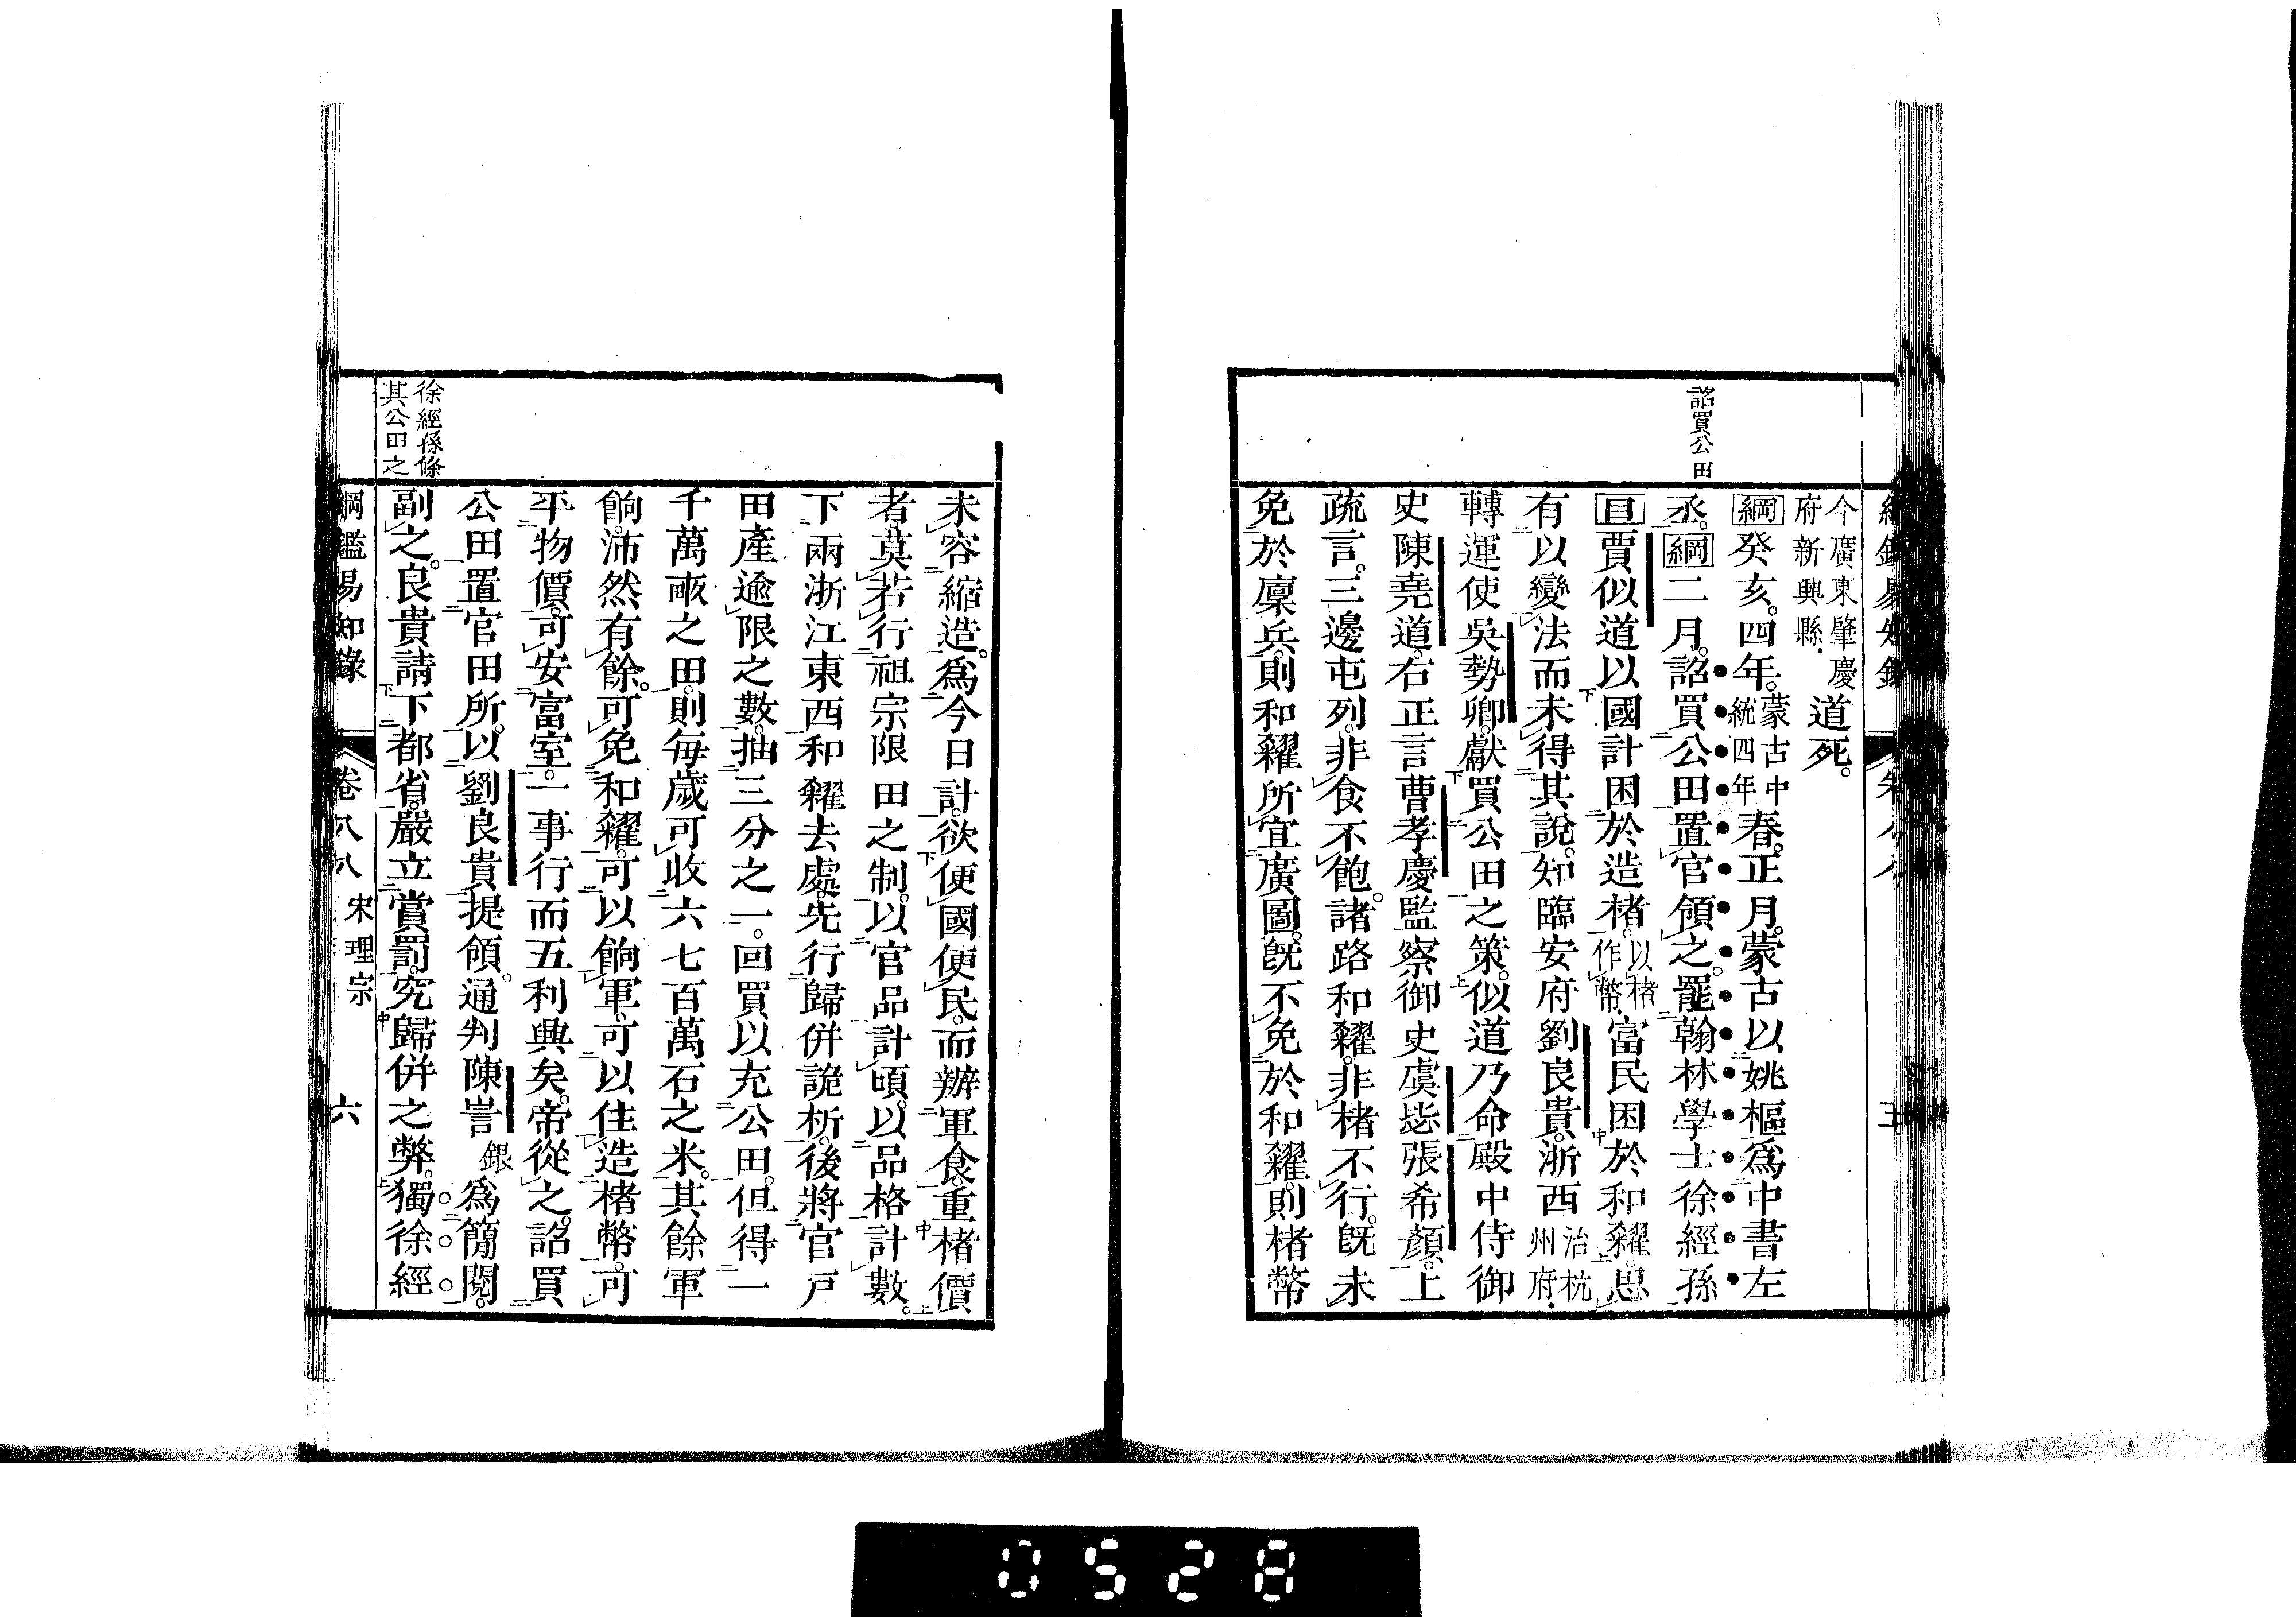 詔買公田
今廣東肇慶府新興縣道死。
綱癸亥。四年。蒙古中統四年春。正月。蒙古以姚樞爲中書左
丞。綱二月。詔買公田。置官領之。罷翰林學士徐經孫
目賈似道以國計困於造楮。以楮作幣富民困於和糴。思
有以變法而未得其說。知臨安府劉良貴。浙西治杭州府轉運使吳勢卿。獻買公田之策。似道乃命殿中侍御
史陳堯道。右正言曹孝慶監察御史虞毖張希顏。上
疏言。三邊屯列。非食不飽。諸路和糴。非楮不行。旣未
免於廩兵。則和糴所宜廣圖。旣不免於和糴。則楮幣
未容縮造。爲今日計。欲便國便民。而辦軍食。重楮價
者。莫若行祖宗限田之制。以官品計頃。以品格計數。
下兩浙江東西和糴去處。先行歸併詭析。後將官戶
田產逾限之數。抽三分之一。回買以充公田。但得一
千萬畝之田。則每歲可收六七百萬石之米。其餘軍
餉。沛然有餘。可免和糴。可以餉軍。可以住造楮幣。可
平物價。可安富室。一事行而五利興矣。帝從之。詔買
公田置官田所。以劉良貴提領。通判陳訔銀爲簡閱。
副之。良貴請下都省。嚴立賞罰。究歸併之弊。獨徐經
徐經孫條其公田之
綱鑑易知錄
卷八八 宋理宗 六
0528